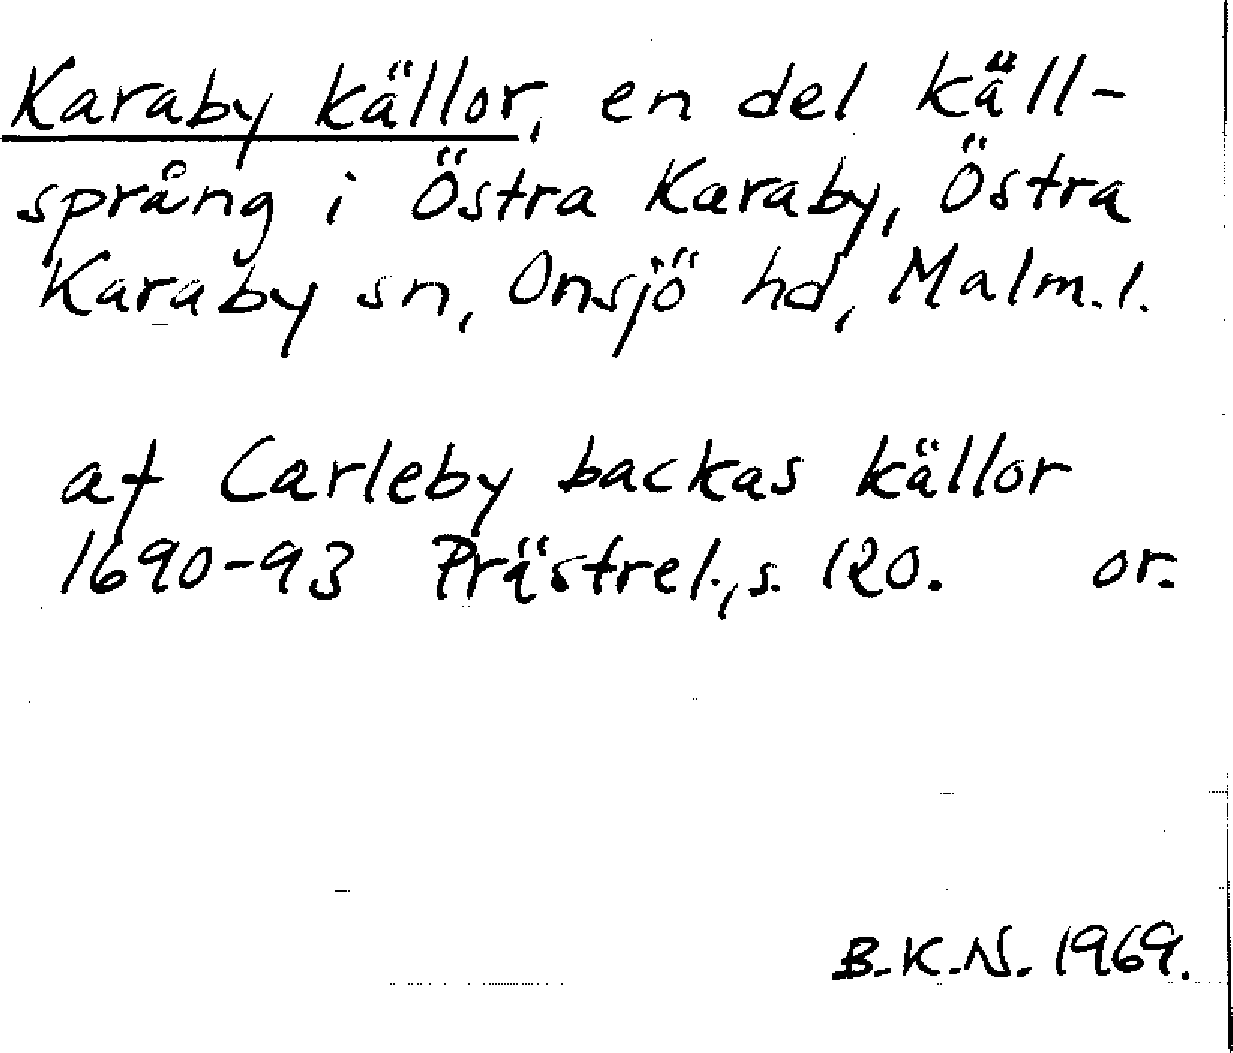 Karaby källor, en del käll-
språng i Östra Karaby, Östra
Karaby sn, Onsjö hd, Malm.l.
af Carleby backas källor
1690-93 Prästrel., s. 120. or.
B.K.N. 1969.